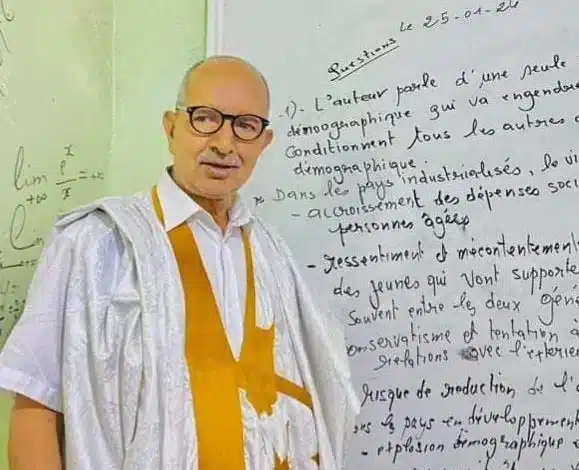 Questions Le 25-01-24
1). L'auteur parle d'une seule
démographique qui va engendre
conditionnent tous les autres
démographique.
* Dans les pays industrialisés, le vi
- accroissement des dépenses soci
personnes âgées
- ressentiment et mécontentement
des jeunes qui vont supporte
souvent entre les deux géné
onservatisme et tentation
relations avec l'exterie
risque de réduction de l'
les pays en développement
- explosion démographique
lim e^x/x = +∞
+∞